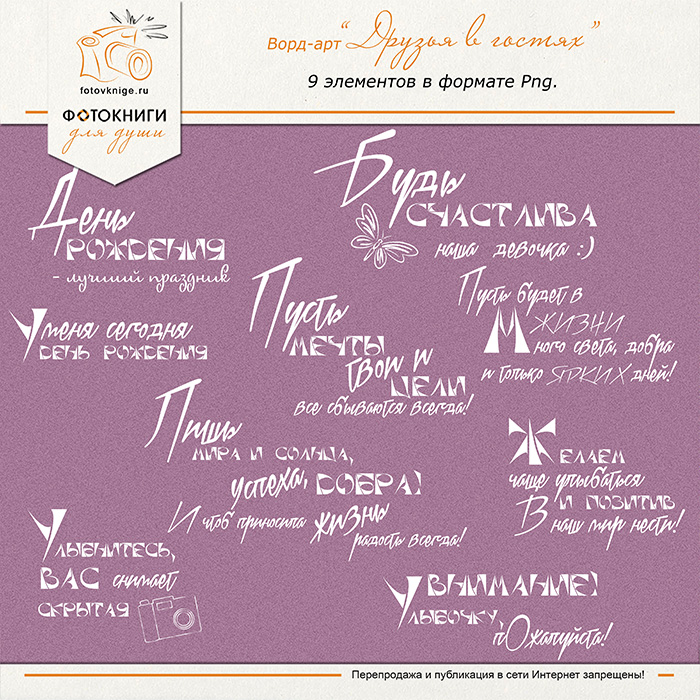 Ворд-арт “Друзья в гостях”
9 элементов в формате Png.
fotovknige.ru
ФОТОКНИГИ
для души
День
РОЖДЕНИЯ
- лучший праздник
Будь
СЧАСТЛИВА
наша девочка :)
У меня сегодня
ДЕНЬ РОЖДЕНИЯ
Пусть
МЕЧТЫ
Твои и
ЦЕЛИ
все сбываются всегда!
Пусть будет в
ЖИЗНИ
Много света, добра
и только ЯРКИХ дней!
Пишь
МИРА И СОЛНЦА,
успеха, ДОБРА!
И чтоб приносила жизнь
радость всегда!
ЖЕЛАЕМ
чаще улыбаться
И ПОЗИТИВ
В наш мир нести!
УЛЫБНИТЕСЬ,
ВАС снимает
СКРЫТАЯ
ВНИМАНИЕ!
УЛЫБОЧКУ,
пОжалуйста!
Перепродажа и публикация в сети Интернет запрещены!